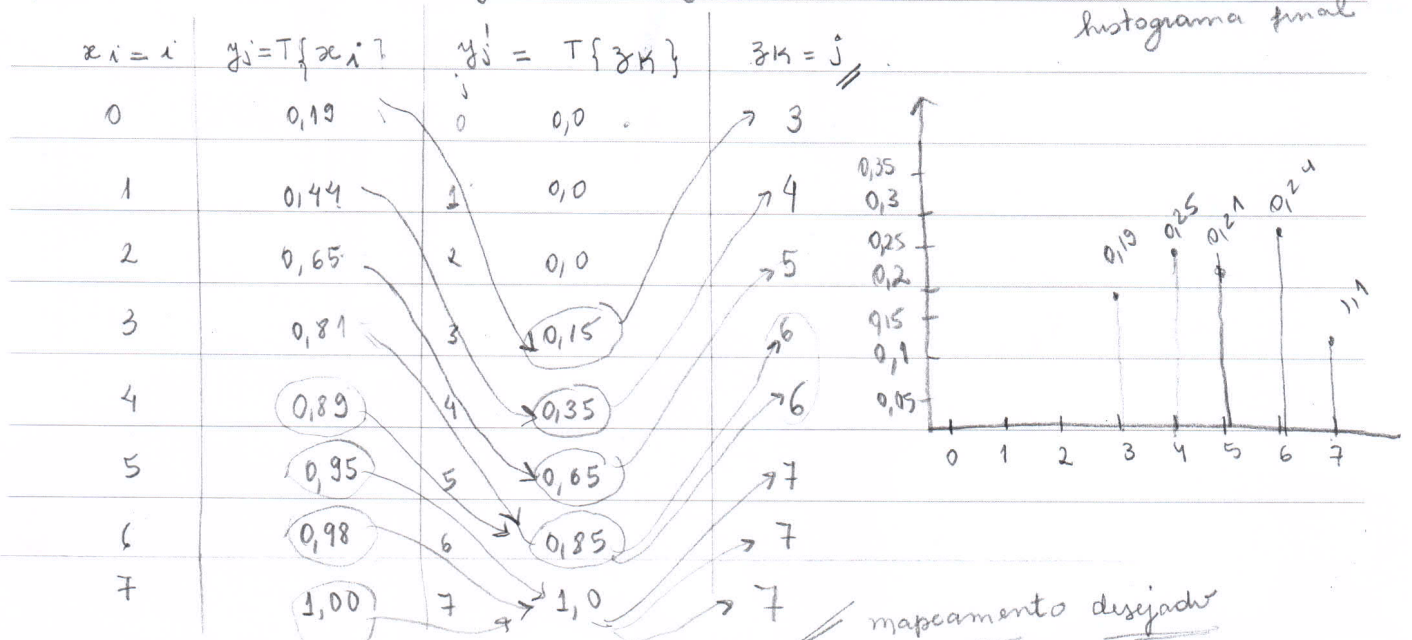 histograma final
xi = i yj = T{xi} y'j = T{zk} zk = j
j
0 0,19 0 0,0 3
1 0,44 1 0,0 4
2 0,65 2 0,0 5
3 0,81 3 0,15 6
4 0,89 4 0,35 6
5 0,95 5 0,65 7
6 0,98 6 0,85 7
7 1,00 7 1,0 7
mapeamento desejado
0,35
0,3
0,25
0,2
0,15
0,1
0,05
0,19 0,25 0,21 0,24
0 1 2 3 4 5 6 7